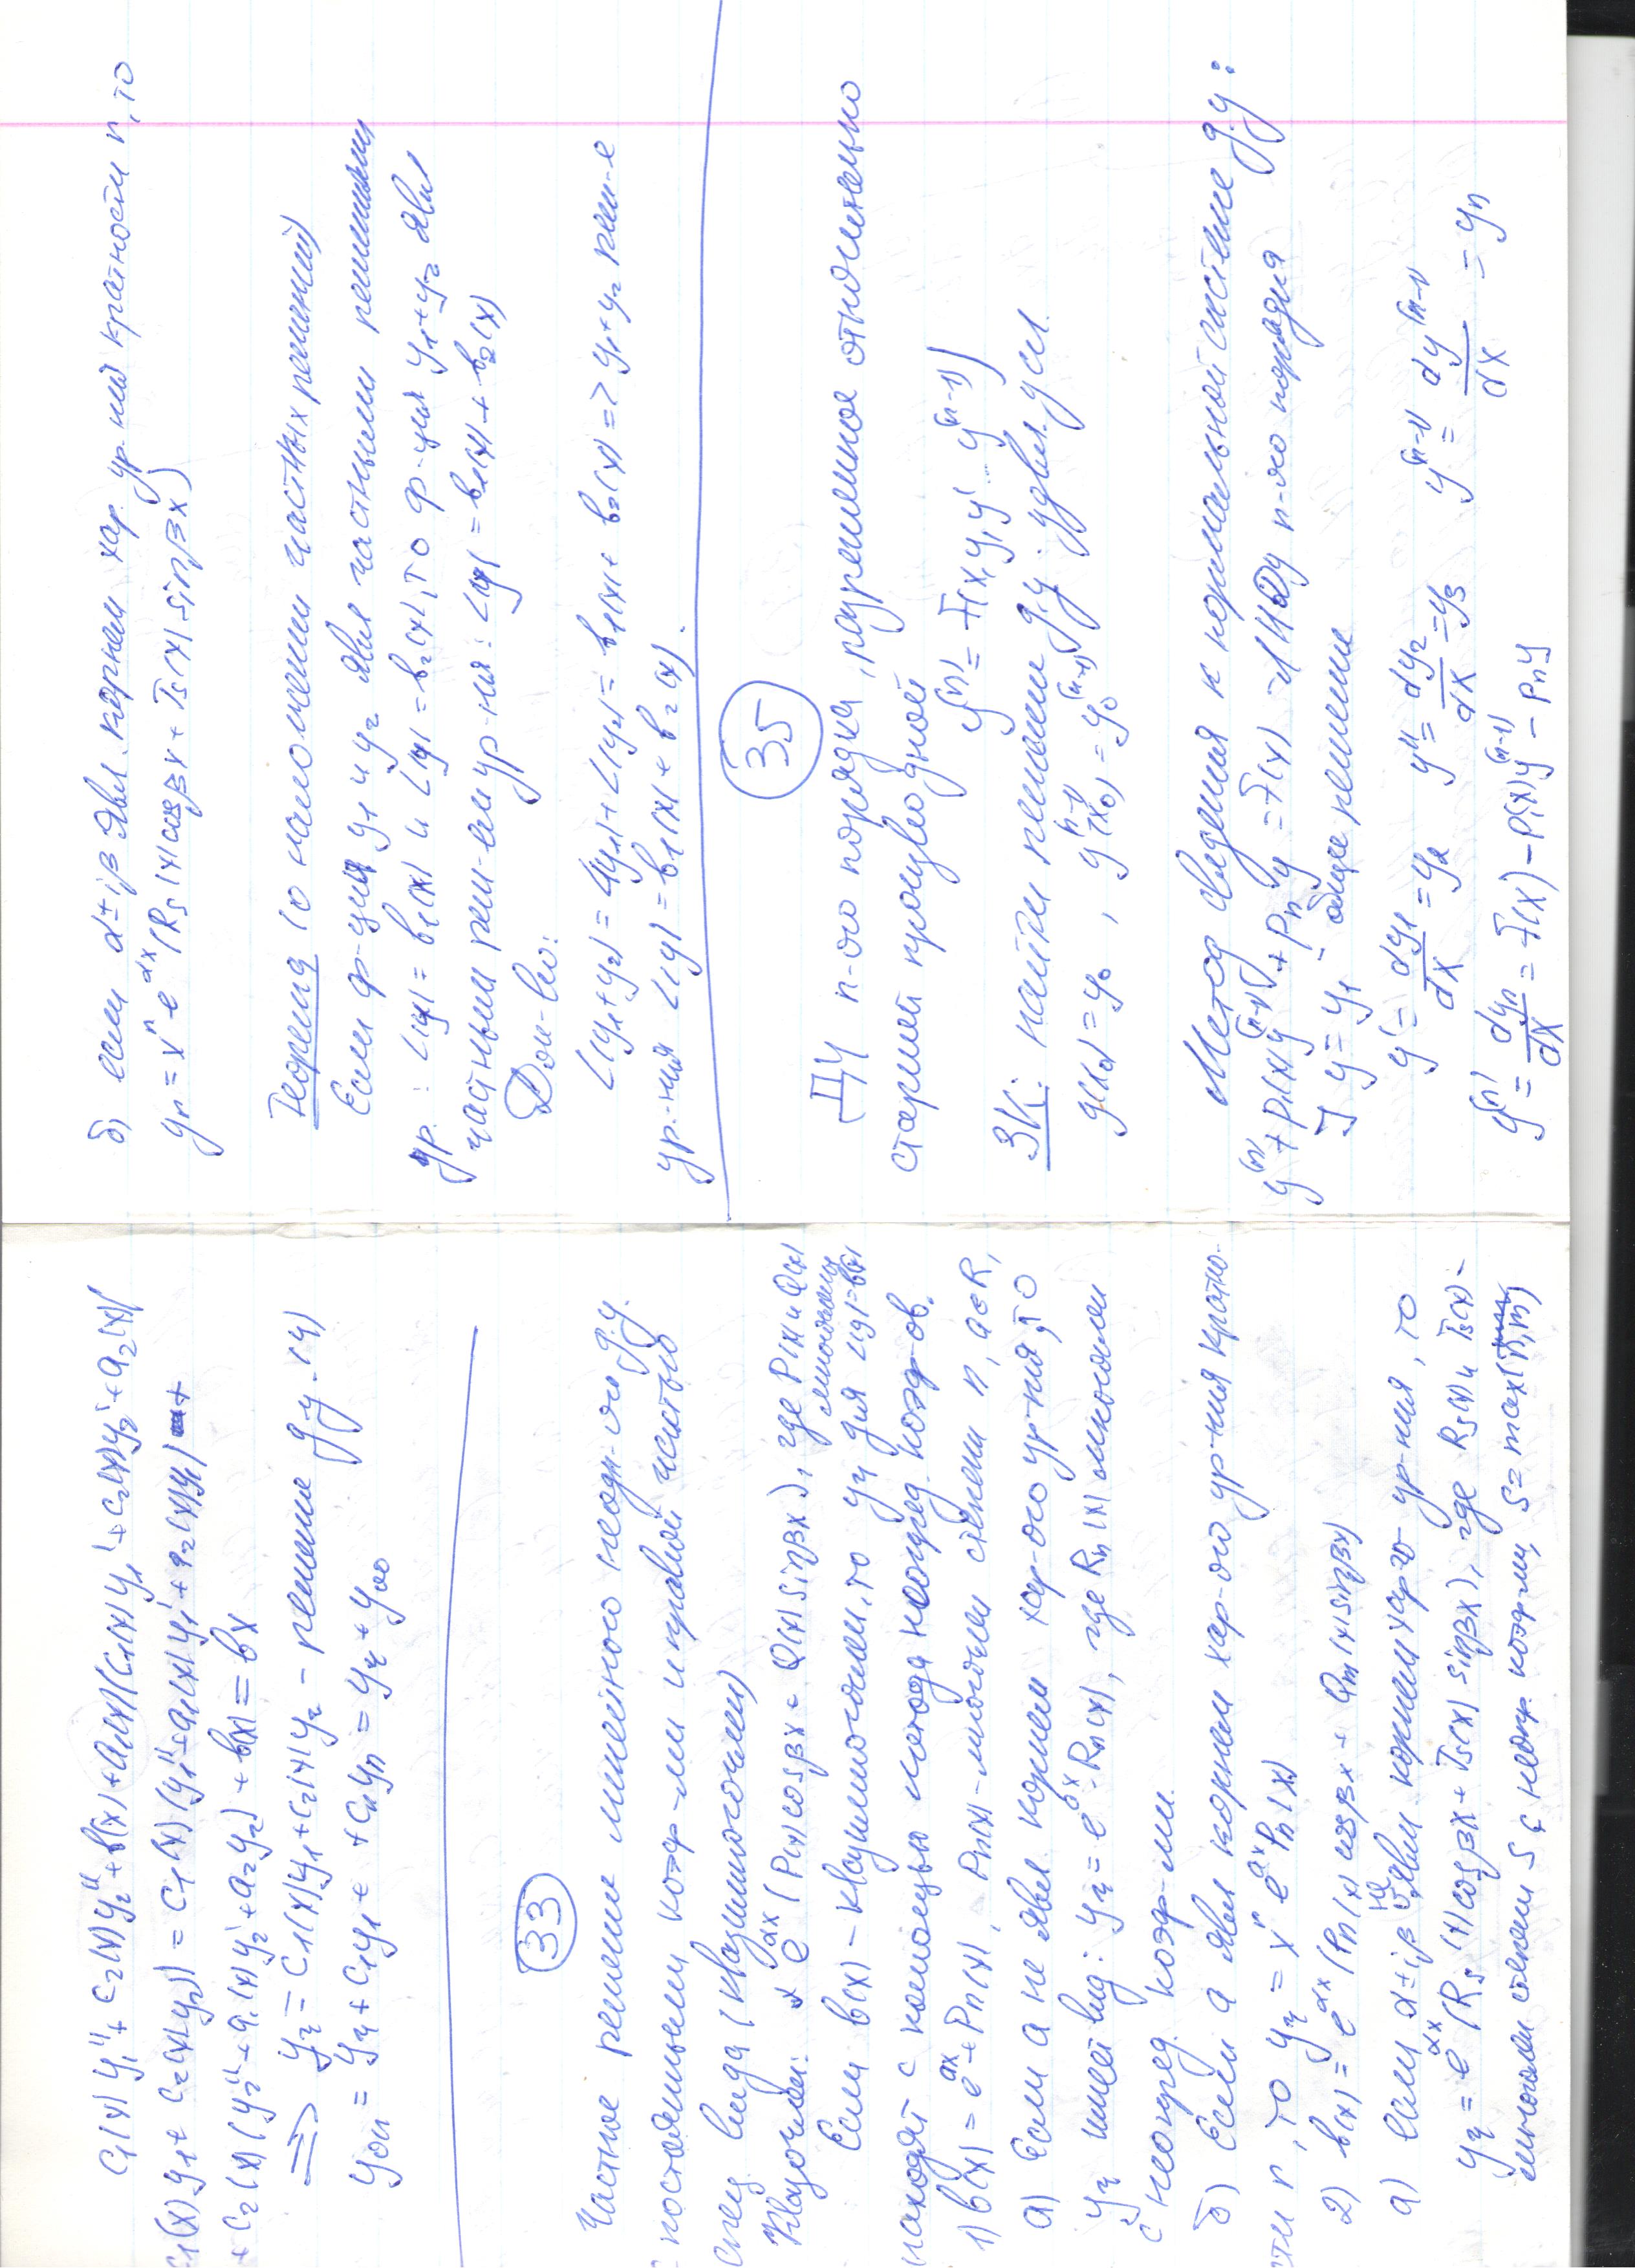 C₁(x)y₁'' + C₂(x)y₂'' + b(x) + a₁(x)(C₁(x)y₁' + C₂(x)y₂' + a₂(x)(
C₁(x)y₁ + C₂(x)y₂) = C₁(x)(y₁'' + a₁(x)y₁' + a₂(x)y₁) +
+ C₂(x)(y₂'' + a₁(x)y₂' + a₂y₂) + b(x) = bx
⟹ yч = C₁(x)y₁ + C₂(x)y₂ - решение д.у. (4)
yон = yч + C₁y₁ + + Cnyn = yч + yоо
33
Частное решение линейного неодн-ого д.у.
с постоянными коэф-ми и правой частью
спец вида (квазимногочлен)
Квазочлен: e^αx (P(x)cosβx + Q(x)sinβx), где P(x) и Q(x)
многочлены
Если b(x) - квазимногочлен, то yч для L(y)=b(x)
находят с помощью метода неопред. коэф-ов.
1) b(x) = e^ax + Pn(x), Pn(x) - многочлен степени n, a∈R,
а) Если a не явл. корнем хар-ого ур-ния, то
yч имеет вид: yч = e^ax·Rn(x), где Rn(x) многочлен
с неопред. коэф-ми.
б) Если a явл корнем хар-ого ур-ния кратно-
сти r, то yч = x^r e^ax Pn(x)
2) b(x) = e^αx (Pn(x)cosβx + Qm(x)sinβx)
а) если α±iβ не явл корнем хар-го ур-ния, то
yч = e^αx (Rs(x)cosβx + Ts(x)sinβx), где Rs(x) и Ts(x) -
многочлен степени S с неопр. коэф-ми, S = max(n,m)
б) если α±iβ явл. корнем хар. ур-ния кратности n, то
yn = x^n e^αx (Rs(x)cosβx + Ts(x)sinβx)
Теорема (о наложении частных решений)
Если ф-ция y₁ и y₂ явл частными решениями
ур.: L(y) = b₁(x) и L(y) = b₂(x), то ф-ция y₁+y₂ явл
частным реш-ем ур-ния: L(y) = b₁(x) + b₂(x)
Док-во:
L(y₁+y₂) = L(y₁) + L(y₂) = b₁(x) + b₂(x) => y₁+y₂ реш-е
ур-ния L(y) = b₁(x) + b₂(x).
35
ДУ n-ого порядка, разрешимое относительно
старшей производной
y^(n) = F(x, y, y' .. y^(n-1))
ЗК: найти решение д.у. удовл. усл.
y(x₀) = y₀, y^(n-1)(x₀) = y₀^(n-1)
Метод сведения к нормальной системе д.у:
y^(n) + P₁(x)y^(n-1) + Pny = F(x) - ЛНДУ n-ого порядка
∃ y = y₁ - общее решение
y' = dy₁/dx = y₂ y'' = dy₂/dx = y₃ y^(n-1) = dy^(n-1)/dx = yn
y^(n) = dyn/dx = F(x) - P₁(x)y^(n-1) - Pny